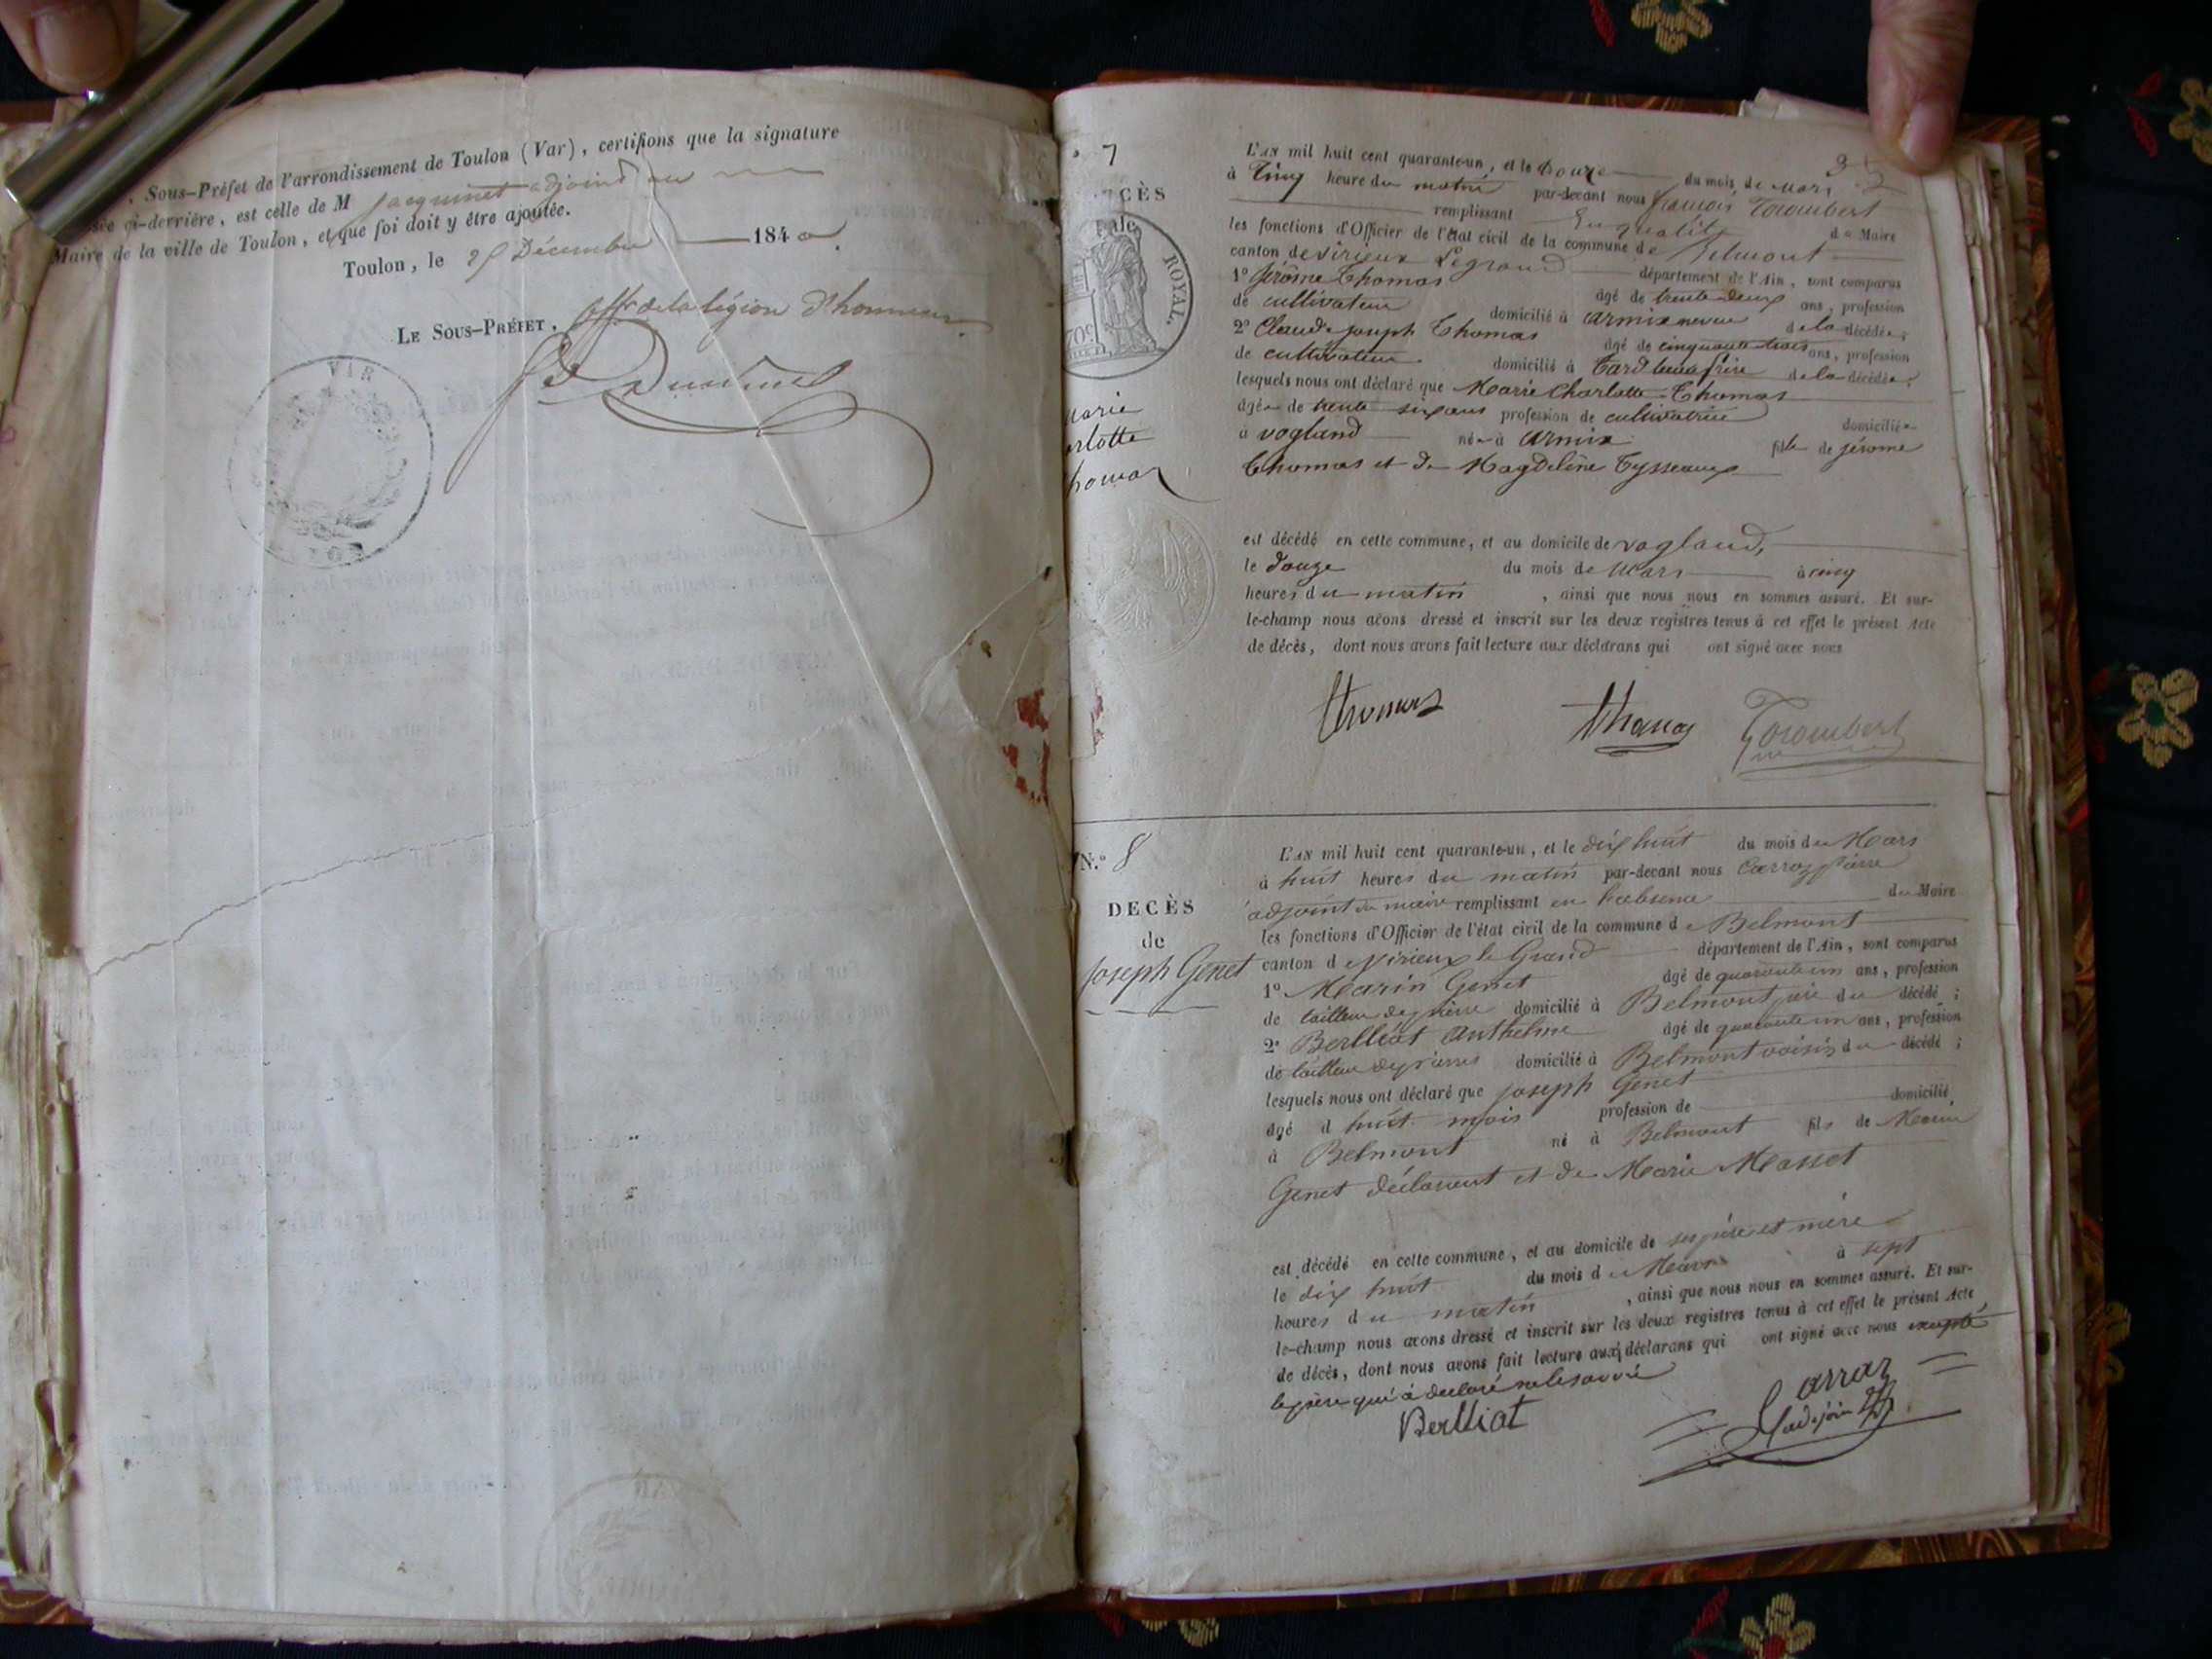 , Sous-Préfet de l'arrondissement de Toulon (Var), certifions que la signature
ci-derrière, est celle de M Jacquinet adjoint au
Maire de la ville de Toulon, et que foi doit y être ajoutée.
Toulon, le 25 Décembre 1840.
LE SOUS-PRÉFET, offr de la légion d'honneur
VAR
7
CÈS
ROYAL.
70c
Marie
arlotte
homas
L'AN mil huit cent quarante-un, et le douze du mois de Mars
à Cinq heure du matin par-devant nous françois Torombert
remplissant En qualité de Maire
les fonctions d'Officier de l'état civil de la commune de Belmont
canton de virieux Legrand département de l'Ain, sont comparus
1º Jérôme Thomas âgé de trente deux ans, profession
de cultivateur domicilié à armix neveu de la décédée;
2º Claude joseph Thomas âgé de cinquante trois ans, profession
de cultivateur domicilié à frère de la décédée;
lesquels nous ont déclaré que Marie Charlotte Thomas
âgée de trente six ans profession de cultivatrice domiciliée
à vogland née à armix fille de jérome
Thomas et de Magdeleine Tysseaux
est décédé en cette commune, et au domicile de vogland,
le douze du mois de Mars à cinq
heures du matin, ainsi que nous nous en sommes assuré. Et sur-
le-champ nous avons dressé et inscrit sur les deux registres tenus à cet effet le présent Acte
de décès, dont nous avons fait lecture aux déclarans qui ont signé avec nous
thomas thomas Torombert
N.º 8
DECÈS
de
Joseph Genet
L'AN mil huit cent quarante-un, et le dix huit du mois de Mars
à huit heures du matin par-devant nous Carraz pierre
adjoint du maire remplissant en habsence du Maire
les fonctions d'Officier de l'état civil de la commune d Belmont
canton de Virieux le Grand département de l'Ain, sont comparus
1º Marin Genet âgé de quarante un ans, profession
de tailleur de pierre domicilié à Belmont père du décédé;
2º Berlliat Anthelme âgé de quarante un ans, profession
de tailleur de pierres domicilié à Belmont voisin du décédé;
lesquels nous ont déclaré que joseph Genet
âgé d huit mois profession de domicilié
à Belmont né à Belmont fils de Marin
Genet déclarent et de Marie Masset
est décédé en cette commune, et au domicile de ses père et mère
le dix huit du mois de Mars à sept
heures du matin, ainsi que nous nous en sommes assuré. Et sur-
le-champ nous avons dressé et inscrit sur les deux registres tenus à cet effet le présent Acte
de décès, dont nous avons fait lecture aux déclarans qui ont signé avec nous excepté
le père qui à declaré ne le savoir
Berlliat Carraz
adjoin